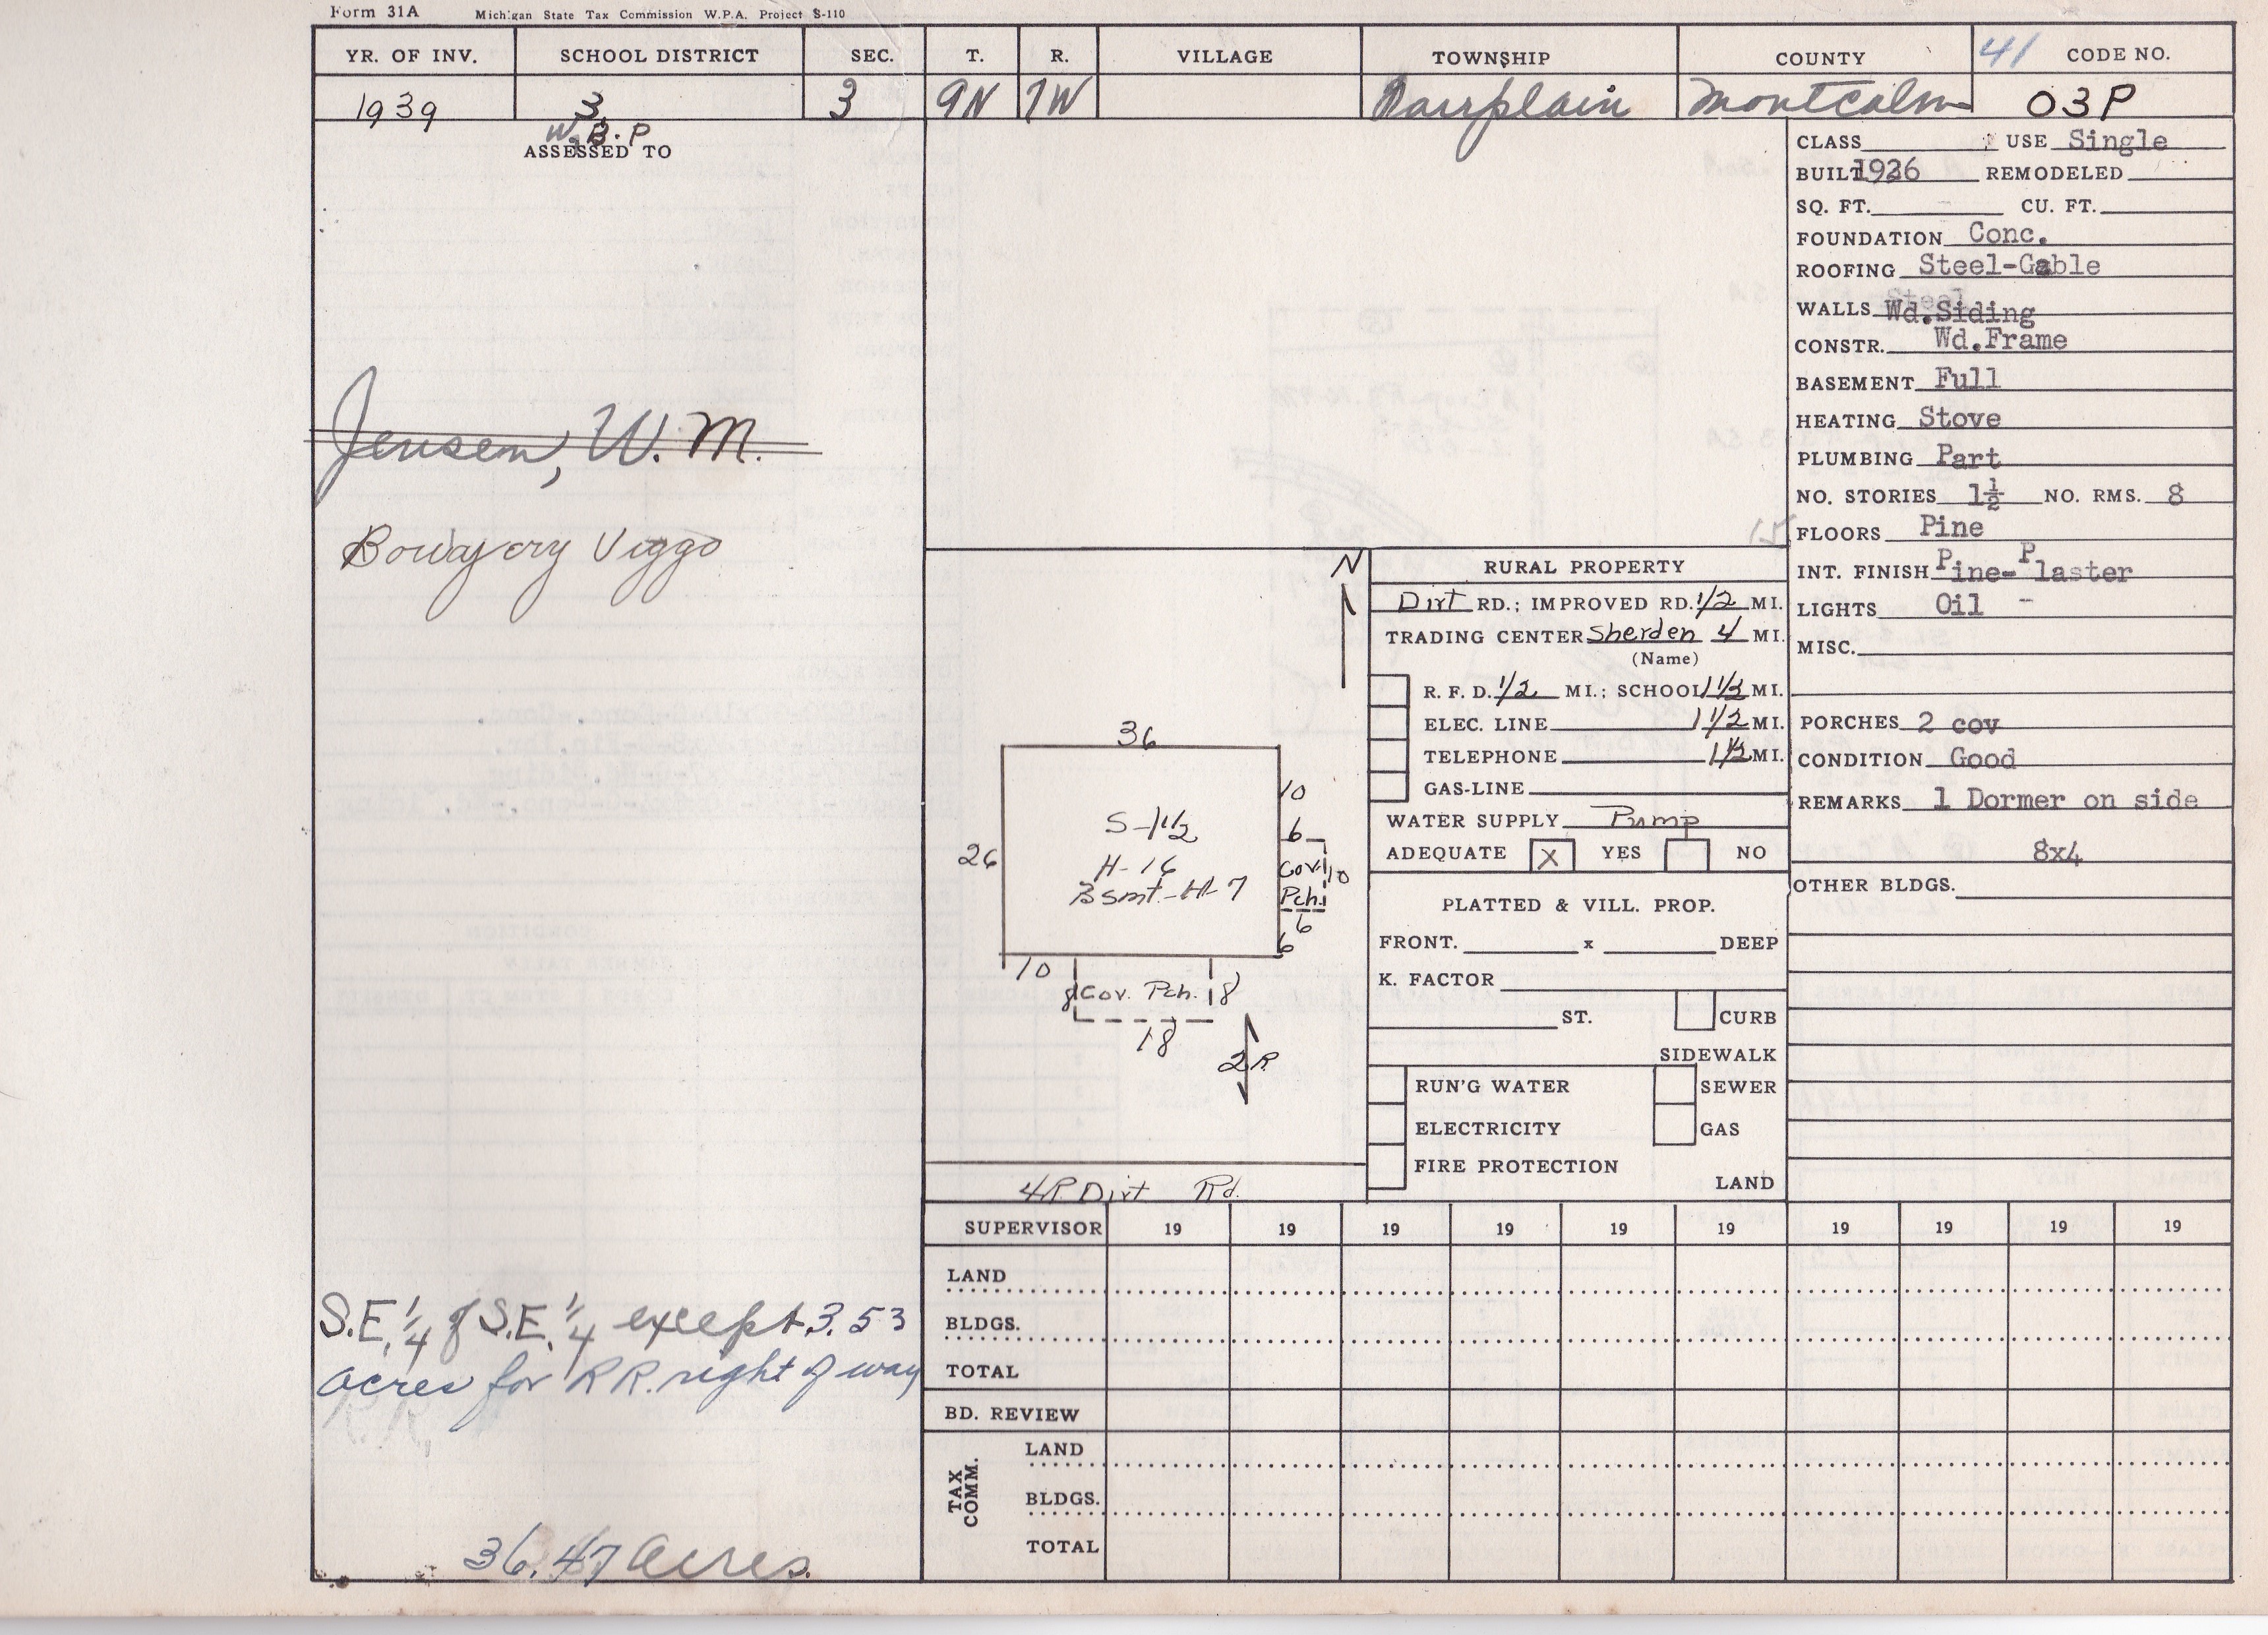 Form 31A Michigan State Tax Commission W.P.A. Project S-110
YR. OF INV. SCHOOL DISTRICT SEC. T. R. VILLAGE TOWNSHIP COUNTY 41 CODE NO.
1939 3 3 9N 7W Fairplain Montcalm 03P
W.B.P
ASSESSED TO
Jensen, W. M.
Viggo
S.E. 1/4 of S.E. 1/4 except 3.53
acres for RR. right of way
R.R.
36.47 acres.
N
36
26
10
6
S-1 1/2
H-16
Bsmt.-H-7
Cov. 10
Pch.
6
6
10
8 Cov. Pch. 8
18
2R
4R Dirt Rd.
RURAL PROPERTY
Dirt RD.; IMPROVED RD. 1/2 MI.
TRADING CENTER Sherden 4 MI.
(Name)
R. F. D. 1/2 MI.; SCHOOL 1 1/2 MI.
ELEC. LINE 1 1/2 MI.
TELEPHONE 1 1/2 MI.
GAS-LINE
WATER SUPPLY Pump
ADEQUATE X YES NO
PLATTED & VILL. PROP.
FRONT. x DEEP
K. FACTOR
ST. CURB
SIDEWALK
RUN'G WATER SEWER
ELECTRICITY GAS
FIRE PROTECTION
LAND
CLASS USE Single
BUILT 1926 REMODELED
SQ. FT. CU. FT.
FOUNDATION Conc.
ROOFING Steel-Gable
Steel
WALLS Wd.Siding
CONSTR. Wd.Frame
BASEMENT Full
HEATING Stove
PLUMBING Part
NO. STORIES 1½ NO. RMS. 8
FLOORS Pine
INT. FINISH Pine-Plaster
LIGHTS Oil -
MISC.
PORCHES 2 cov
CONDITION Good
REMARKS 1 Dormer on side
8x4
OTHER BLDGS.
SUPERVISOR 19 19 19 19 19 19 19 19 19 19
LAND
BLDGS.
TOTAL
BD. REVIEW
TAX COMM.
LAND
BLDGS.
TOTAL